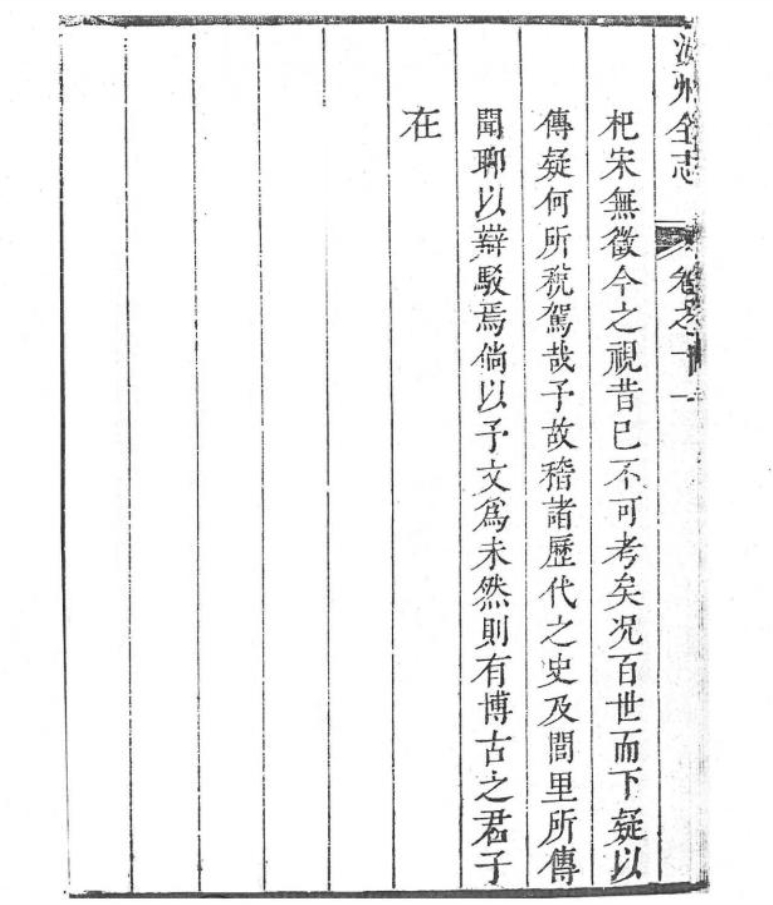 汝州全志 卷之十一
杞宋無徵今之視昔已不可考矣况百世而下疑以
傳疑何所稅駕哉予故稽諸歷代之史及閭里所傳
聞聊以辯駁焉倘以予文爲未然則有博古之君子
在